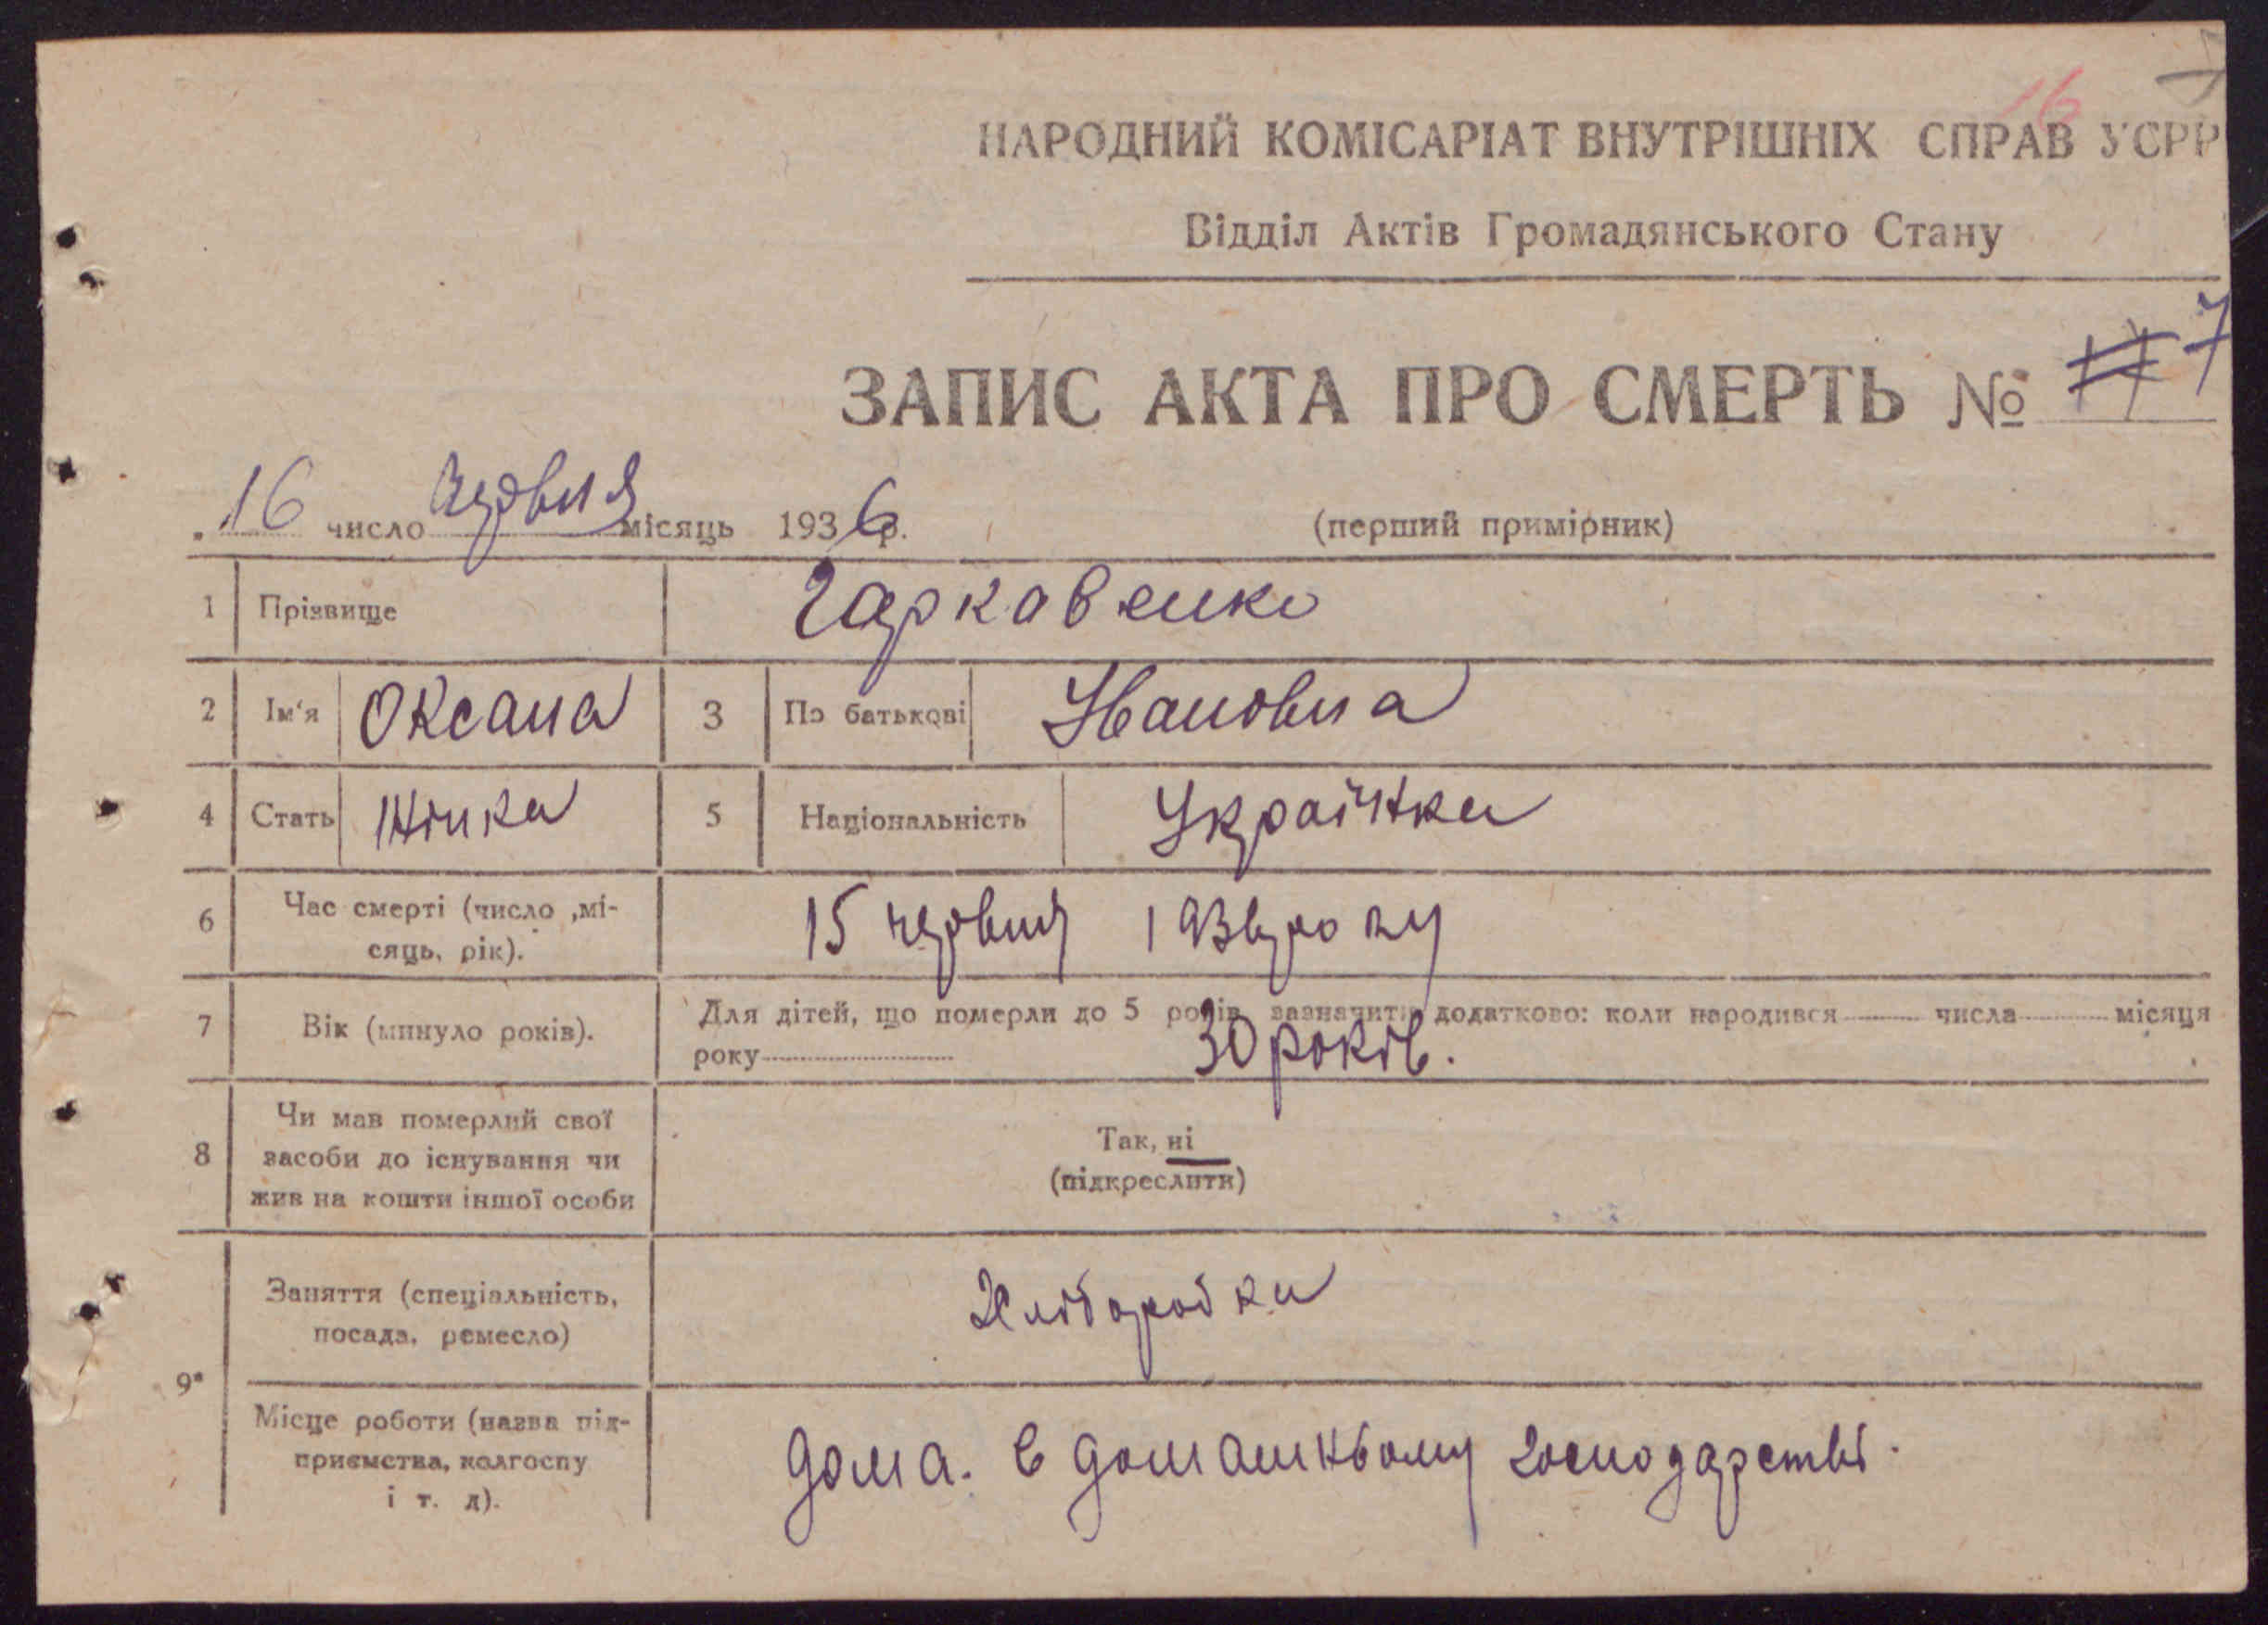 16
НАРОДНИЙ КОМІСАРІАТ ВНУТРІШНІХ СПРАВ УСРР
Відділ Актів Громадянського Стану
ЗАПИС АКТА ПРО СМЕРТЬ № 7
„16 число червня місяць 1936р. (перший примірник)
1 Прізвище Гаркавенко
2 Ім'я Оксана 3 По батькові Ивановна
4 Стать Жінка 5 Національність Українка
6 Час смерті (число ,мі-
сяць, рік). 15 червня 1936 року
7 Вік (минуло років). Для дітей, що померли до 5 років, зазначити додатково: коли народився числа місяця
року 30 років.
8 Чи мав померлий свої
засоби до існування чи
жив на кошти іншої особи
Так, ні
(підкреслити)
9* Заняття (спеціальність,
посада, ремесло) Хліборобка
Місце роботи (назва під-
приємства, колгоспу
і т. д). дома. в домашньому господарстві.